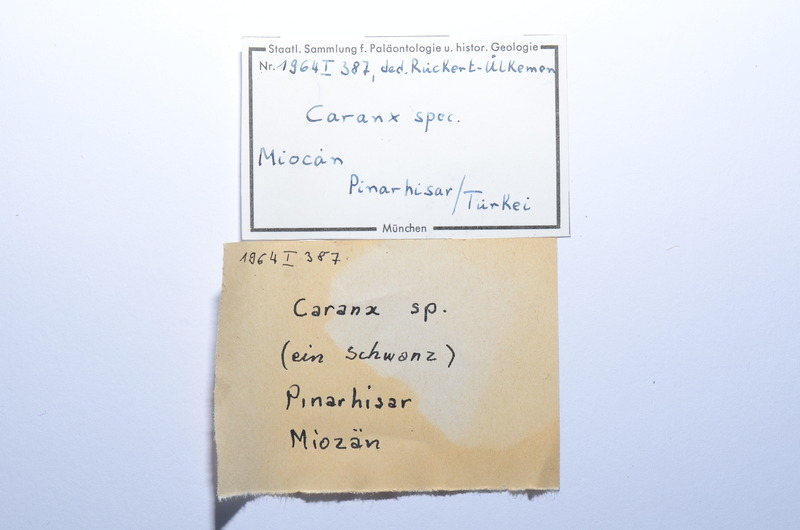 Staatl. Sammlung f. Paläontologie u. histor. Geologie
Nr. 1964 I 387, ded. Rückert-Ülkemen
Caranx spec.
Miocän
Pinarhisar/Türkei
München
1964 I 387
Caranx sp.
(ein Schwanz)
Pinarhisar
Miozän